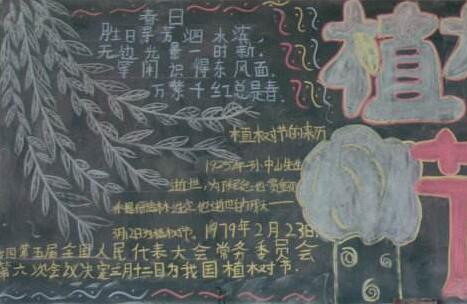 春日
胜日寻芳泗水滨,
无边光景一时新.
等闲识得东风面,
万紫千红总是春.
植树
节
植树节的来历
1925年孙中山先生
逝世,为了纪念
1979年2月23日,
第五届全国人民代表大会常务委员会
第六次会议决定三月十二日为我国植树节.